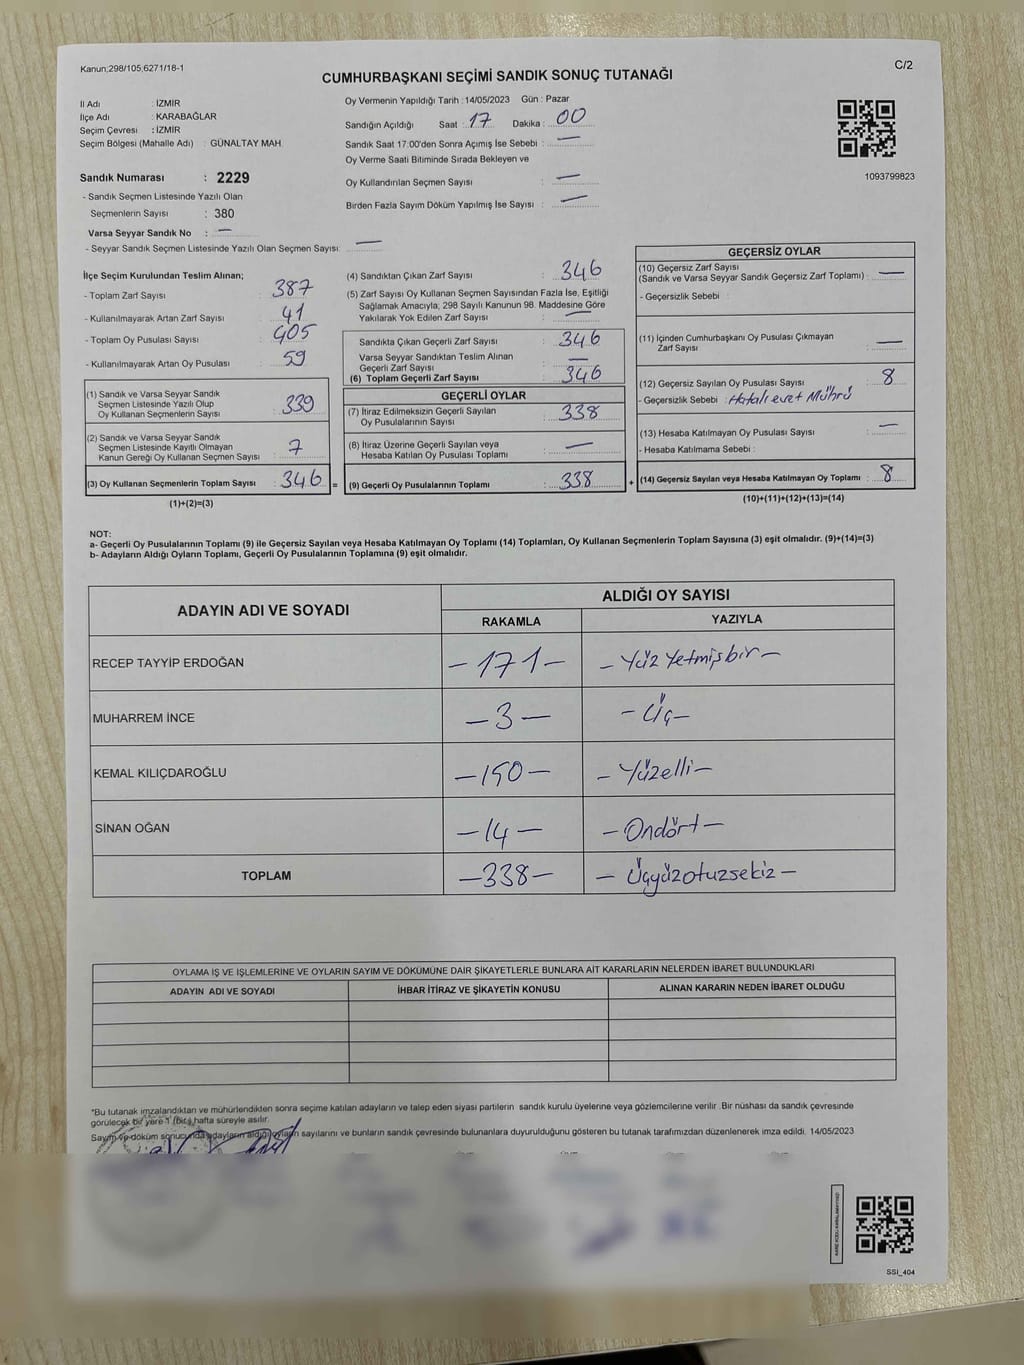 Kanun;298/105;6271/18-1
C/2
CUMHURBAŞKANI SEÇİMİ SANDIK SONUÇ TUTANAĞI
İl Adı : İZMİR
İlçe Adı : KARABAĞLAR
Seçim Çevresi : İZMİR
Seçim Bölgesi (Mahalle Adı) : GÜNALTAY MAH.
Oy Vermenin Yapıldığı Tarih : 14/05/2023 Gün : Pazar
Sandığın Açıldığı Saat : 17 Dakika : 00
Sandık Saat 17:00'den Sonra Açımış İse Sebebi : —
Oy Verme Saati Bitiminde Sırada Bekleyen ve
Oy Kullandırılan Seçmen Sayısı : —
Birden Fazla Sayım Döküm Yapılmış İse Sayısı : —
1093799823
Sandık Numarası : 2229
- Sandık Seçmen Listesinde Yazılı Olan
Seçmenlerin Sayısı : 380
Varsa Seyyar Sandık No : —
- Seyyar Sandık Seçmen Listesinde Yazılı Olan Seçmen Sayısı: —
İlçe Seçim Kurulundan Teslim Alınan;
- Toplam Zarf Sayısı : 387
- Kullanılmayarak Artan Zarf Sayısı : 41
- Toplam Oy Pusulası Sayısı : 405
- Kullanılmayarak Artan Oy Pusulası : 59
(1) Sandık ve Varsa Seyyar Sandık
Seçmen Listesinde Yazılı Olup
Oy Kullanan Seçmenlerin Sayısı : 339
(2) Sandık ve Varsa Seyyar Sandık
Seçmen Listesinde Kayıtlı Olmayan
Kanun Gereği Oy Kullanan Seçmen Sayısı : 7
(3) Oy Kullanan Seçmenlerin Toplam Sayısı : 346 =
(1)+(2)=(3)
(4) Sandıktan Çıkan Zarf Sayısı : 346
(5) Zarf Sayısı Oy Kullanan Seçmen Sayısından Fazla İse, Eşitliği
Sağlamak Amacıyla; 298 Sayılı Kanunun 98. Maddesine Göre
Yakılarak Yok Edilen Zarf Sayısı : —
Sandıkta Çıkan Geçerli Zarf Sayısı : 346
Varsa Seyyar Sandıktan Teslim Alınan
Geçerli Zarf Sayısı : —
(6) Toplam Geçerli Zarf Sayısı : 346
GEÇERLİ OYLAR
(7) İtiraz Edilmeksizin Geçerli Sayılan
Oy Pusulalarının Sayısı : 338
(8) İtiraz Üzerine Geçerli Sayılan veya
Hesaba Katılan Oy Pusulası Toplamı : —
(9) Geçerli Oy Pusulalarının Toplamı : 338 +
GEÇERSİZ OYLAR
(10) Geçersiz Zarf Sayısı
(Sandık ve Varsa Seyyar Sandık Geçersiz Zarf Toplamı) : —
- Geçersizlik Sebebi :
(11) İçinden Cumhurbaşkanı Oy Pusulası Çıkmayan
Zarf Sayısı : —
(12) Geçersiz Sayılan Oy Pusulası Sayısı : 8
- Geçersizlik Sebebi : Hatalı evet Mührü
(13) Hesaba Katılmayan Oy Pusulası Sayısı : —
- Hesaba Katılmama Sebebi :
(14) Geçersiz Sayılan veya Hesaba Katılmayan Oy Toplamı : 8
(10)+(11)+(12)+(13)=(14)
NOT:
a- Geçerli Oy Pusulalarının Toplamı (9) ile Geçersiz Sayılan veya Hesaba Katılmayan Oy Toplamı (14) Toplamları, Oy Kullanan Seçmenlerin Toplam Sayısına (3) eşit olmalıdır. (9)+(14)=(3)
b- Adayların Aldığı Oyların Toplamı, Geçerli Oy Pusulalarının Toplamına (9) eşit olmalıdır.
ADAYIN ADI VE SOYADI
ALDIĞI OY SAYISI
RAKAMLA YAZIYLA
RECEP TAYYİP ERDOĞAN — 171 — — Yüz Yetmişbir —
MUHARREM İNCE — 3 — — Üç —
KEMAL KILIÇDAROĞLU — 150 — — Yüzelli —
SİNAN OĞAN — 14 — — Ondört —
TOPLAM — 338 — — Üçyüzotuzsekiz —
OYLAMA İŞ VE İŞLEMLERİNE VE OYLARIN SAYIM VE DÖKÜMÜNE DAİR ŞİKAYETLERLE BUNLARA AİT KARARLARIN NELERDEN İBARET BULUNDUKLARI
ADAYIN ADI VE SOYADI İHBAR İTİRAZ VE ŞİKAYETİN KONUSU ALINAN KARARIN NEDEN İBARET OLDUĞU
*Bu tutanak imzalandıktan ve mühürlendikten sonra seçime katılan adayların ve talep eden siyasi partilerin sandık kurulu üyelerine veya gözlemcilerine verilir. Bir nüshası da sandık çevresinde
görülecek bir yere 1 (bir) hafta süreyle asılır.
Sayım ve döküm sonucunda adayların aldığı oyların sayılarını ve bunların sandık çevresinde bulunanlara duyurulduğunu gösteren bu tutanak tarafımızdan düzenlenerek imza edildi. 14/05/2023
SSI_404